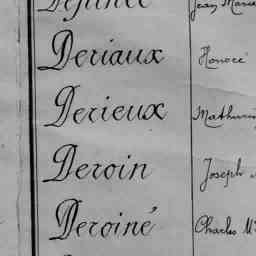 Jean Marie
Deriaux Honoré
Derieux Mathurin
Deroin Joseph
Deroiné Charles M